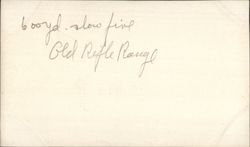 600 yd. slow fire
Old Rifle Range